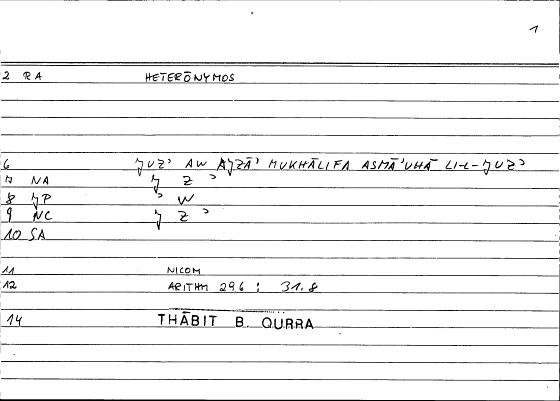 1
2 RA HETERŌNYMOS
6 JUZʾ AW AJZĀʾ MUKHĀLIFA ASMĀʾUHĀ LI-L-JUZʾ
7 NA J Z ʾ
8 JP ʾ W
9 NC J Z ʾ
10 SA
11 NICOM
12 ARITHM 29.6 : 31.8
14 THĀBIT B. QURRA